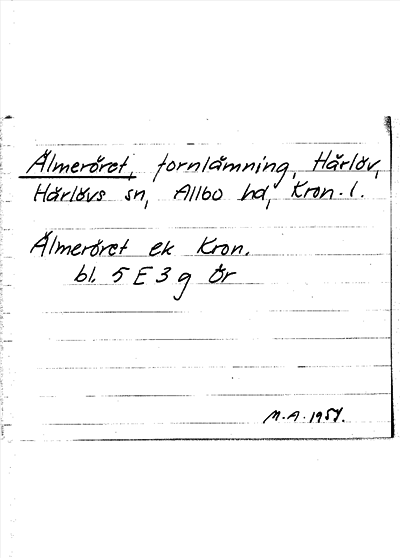 Älmeröret, fornlämning, Härlöv,
Härlövs sn, Allbo hd, Kron. l.
Älmeröret ek Kron.
bl. 5 E 3 g Ör
M.A. 1954.